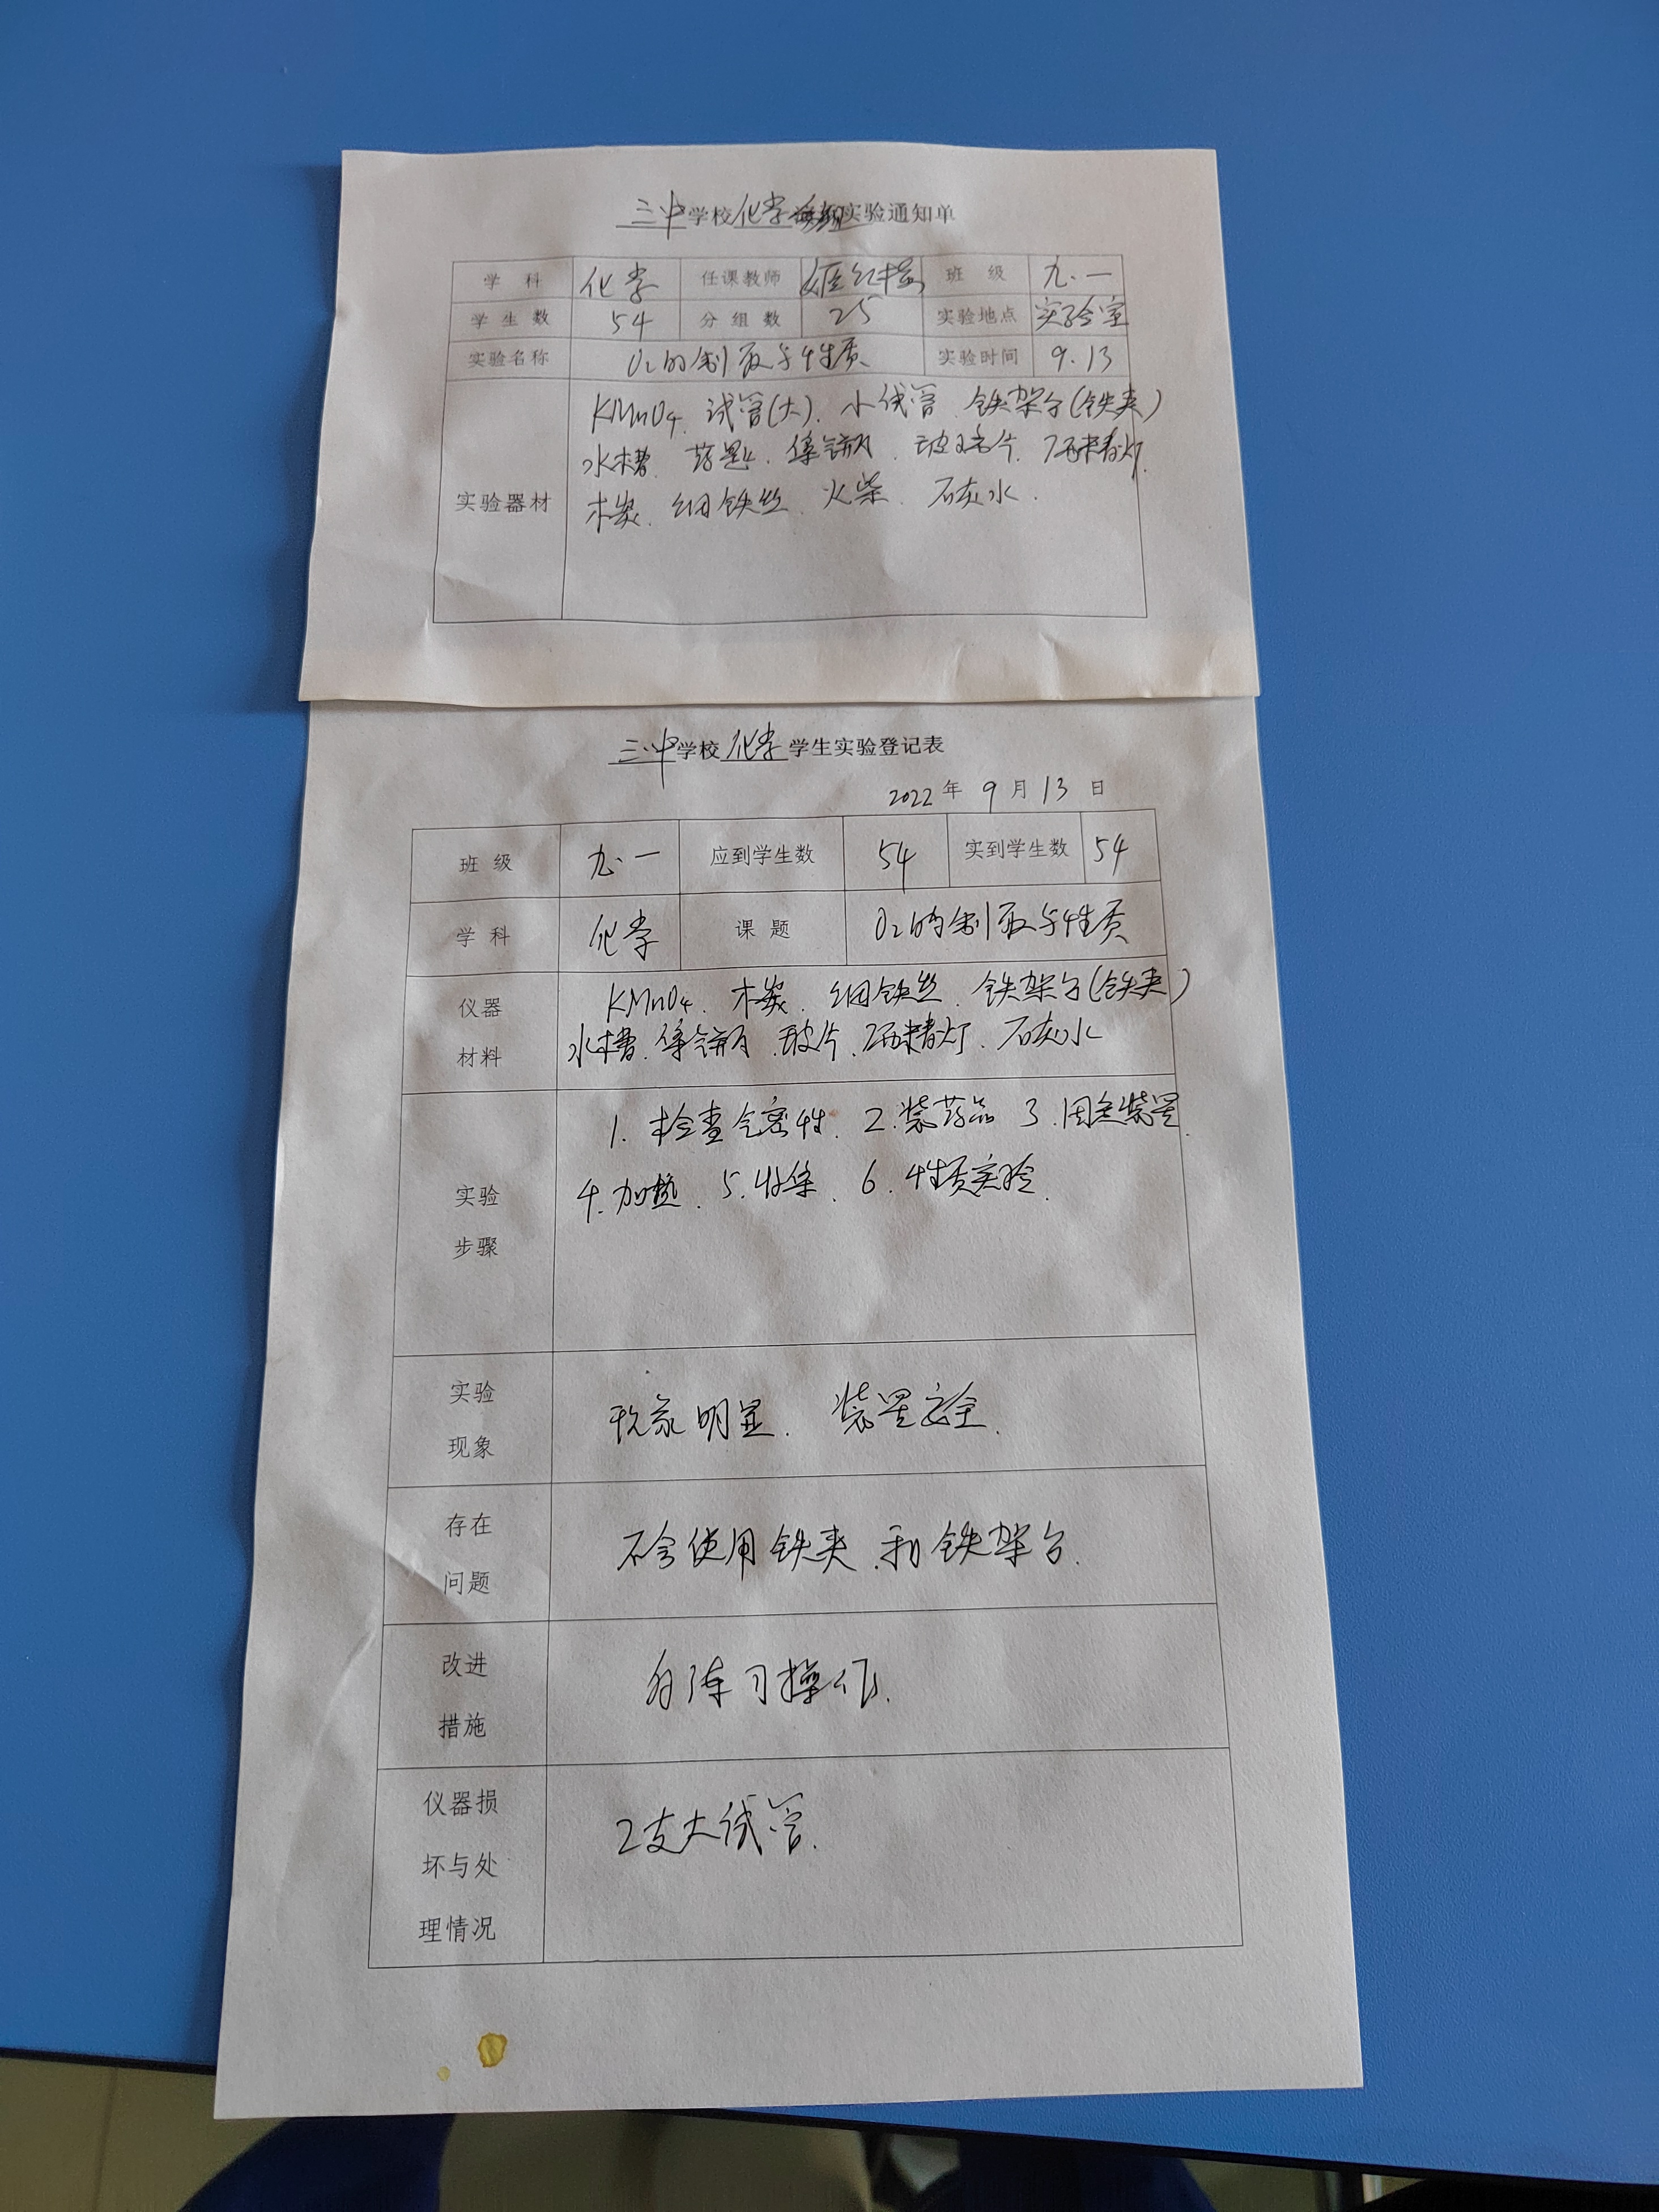 三中学校化学实验通知单
学科 化学 任课教师 班级 九.一
学生数 54 分组数 25 实验地点 实验室
实验名称 O₂的制取与性质 实验时间 9.13
实验器材 KMnO₄、试管(大)、小试管、铁架台(铁夹)
水槽、药匙、集气瓶、玻璃片、酒精灯、
木炭、细铁丝、火柴、石灰水.
三中学校化学学生实验登记表
2022年9月13日
班级 九.一 应到学生数 54 实到学生数 54
学科 化学 课题 O₂的制取与性质
仪器材料 KMnO₄、木炭、细铁丝、铁架台(铁夹)
水槽、集气瓶、玻片、酒精灯、石灰水
实验步骤 1.检查气密性. 2.装药品 3.固定装置.
4.加热. 5.收集. 6.性质实验.
实验现象 现象明显. 装置安全.
存在问题 不会使用铁夹.和铁架台.
改进措施 练习操作.
仪器损坏与处理情况 2支大试管.